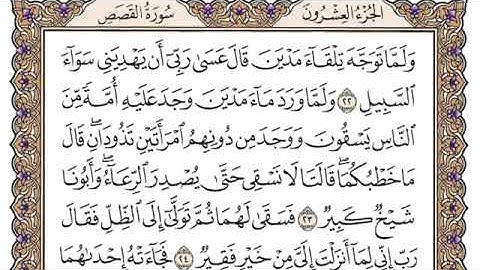 الجزء العشرون سورة القصص
وَلَمَّا تَوَجَّهَ تِلْقَآءَ مَدْيَنَ قَالَ عَسَىٰ رَبِّىٓ أَن يَهْدِيَنِى سَوَآءَ
ٱلسَّبِيلِ ٢٢ وَلَمَّا وَرَدَ مَآءَ مَدْيَنَ وَجَدَ عَلَيْهِ أُمَّةً مِّنَ
ٱلنَّاسِ يَسْقُونَ وَوَجَدَ مِن دُونِهِمُ ٱمْرَأَتَيْنِ تَذُودَانِۖ قَالَ
مَا خَطْبُكُمَاۖ قَالَتَا لَا نَسْقِى حَتَّىٰ يُصْدِرَ ٱلرِّعَآءُۖ وَأَبُونَا
شَيْخٌ كَبِيرٌ ٢٣ فَسَقَىٰ لَهُمَا ثُمَّ تَوَلَّىٰٓ إِلَى ٱلظِّلِّ فَقَالَ
رَبِّ إِنِّى لِمَآ أَنزَلْتَ إِلَىَّ مِنْ خَيْرٍ فَقِيرٌ ٢٤ فَجَآءَتْهُ إِحْدَىٰهُمَا